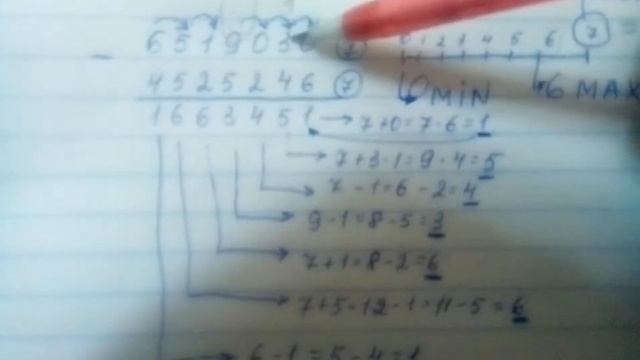 6 5 1 9 0 3 7 0 1 2 3 4 5 6 7
- 4 5 2 5 2 4 6 7 0 MIN 6 MAX
1 6 6 3 4 5 1 → 7+0=7-6=1
→ 7+3-1=9-4=5
→ 7-1=6-2=4
→ 9-1=8-5=3
→ 7+1=8-2=6
→ 7+5-12-1=11-5=6
→ 6-1=5-4=1